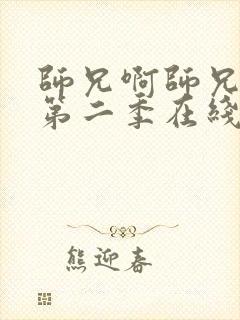 師兄啊師兄
第二季在綫
熊迎春